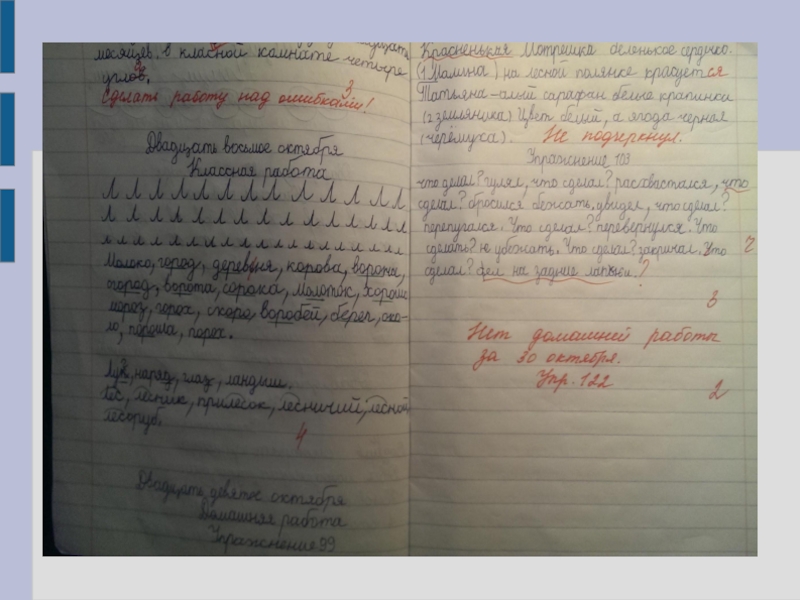 месяцев. в класной комнате четыре
углов.
3
Сделать работу над ошибками!
Двадцать восьмое октября
Классная работа
Л Л Л Л Л Л Л Л Л Л Л Л
Л Л Л Л Л Л Л Л Л Л Л Л Л
л л л л л л л л л л л л л л л
Молоко, город, деревня, корова, ворона,
огород, ворота, сорока, молоток, хорошо
мороз, горох, скоро, воробей, берег, око-
ло, пороша, порох.
Лук, наряд, глаз, ландыш.
Лес, лесник, прилесок, лесничий, лесной
лесоруб.
4
Двадцать девятое октября
Домашняя работа
Упражнение 99
Красненькая Мотрешка беленькое сердечко.
(1 Малина) на лесной полянке красуется
Татьяна – алый сарафан белые крапинки
(2 земляника) Цвет белый, а ягода черная
(черёмуха). Не подчеркнул.
Упражнение 103
что делал? гулял, что сделал? расхвастался, что
сделал? бросился бежать, увидел, что сделал?
перепугался. Что сделал? перевернулся. Что
сделать? не убежать. Что сделал? закричал. Что
сделал? на задние лапки. ?
3
Нет домашней работы
за 30 октября.
Упр. 122
2